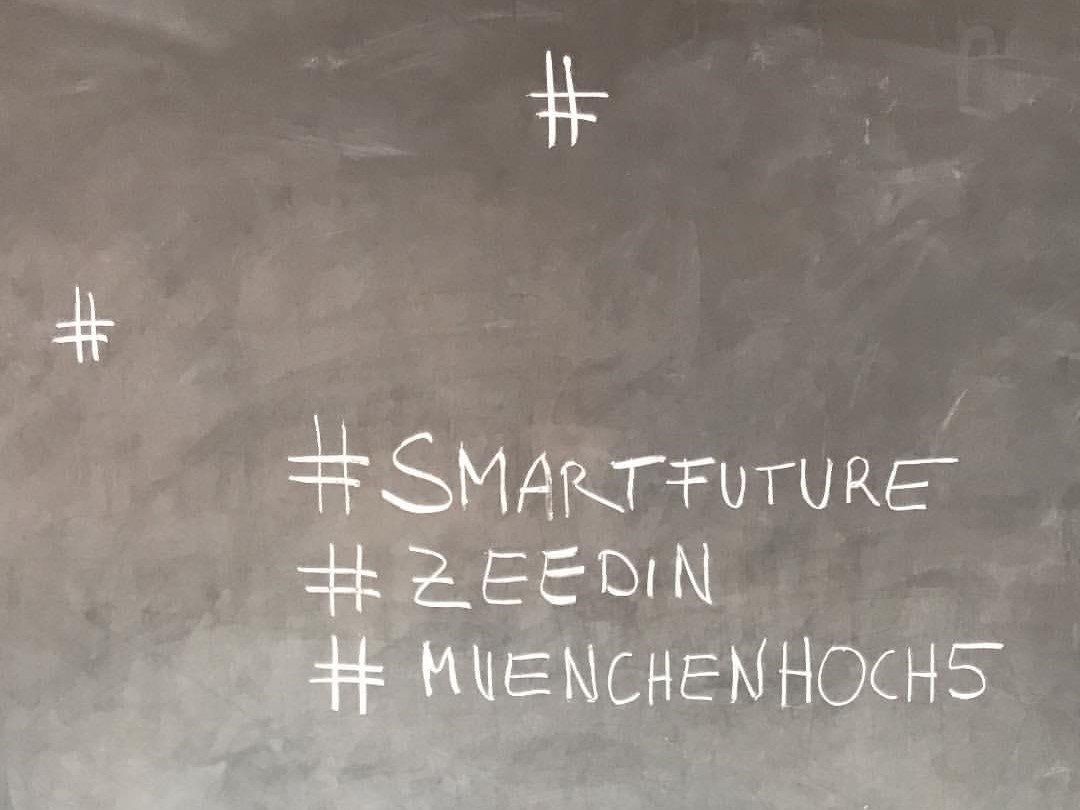 #
#
#SMARTFUTURE
#ZEEDIN
# MUENCHENHOCH5